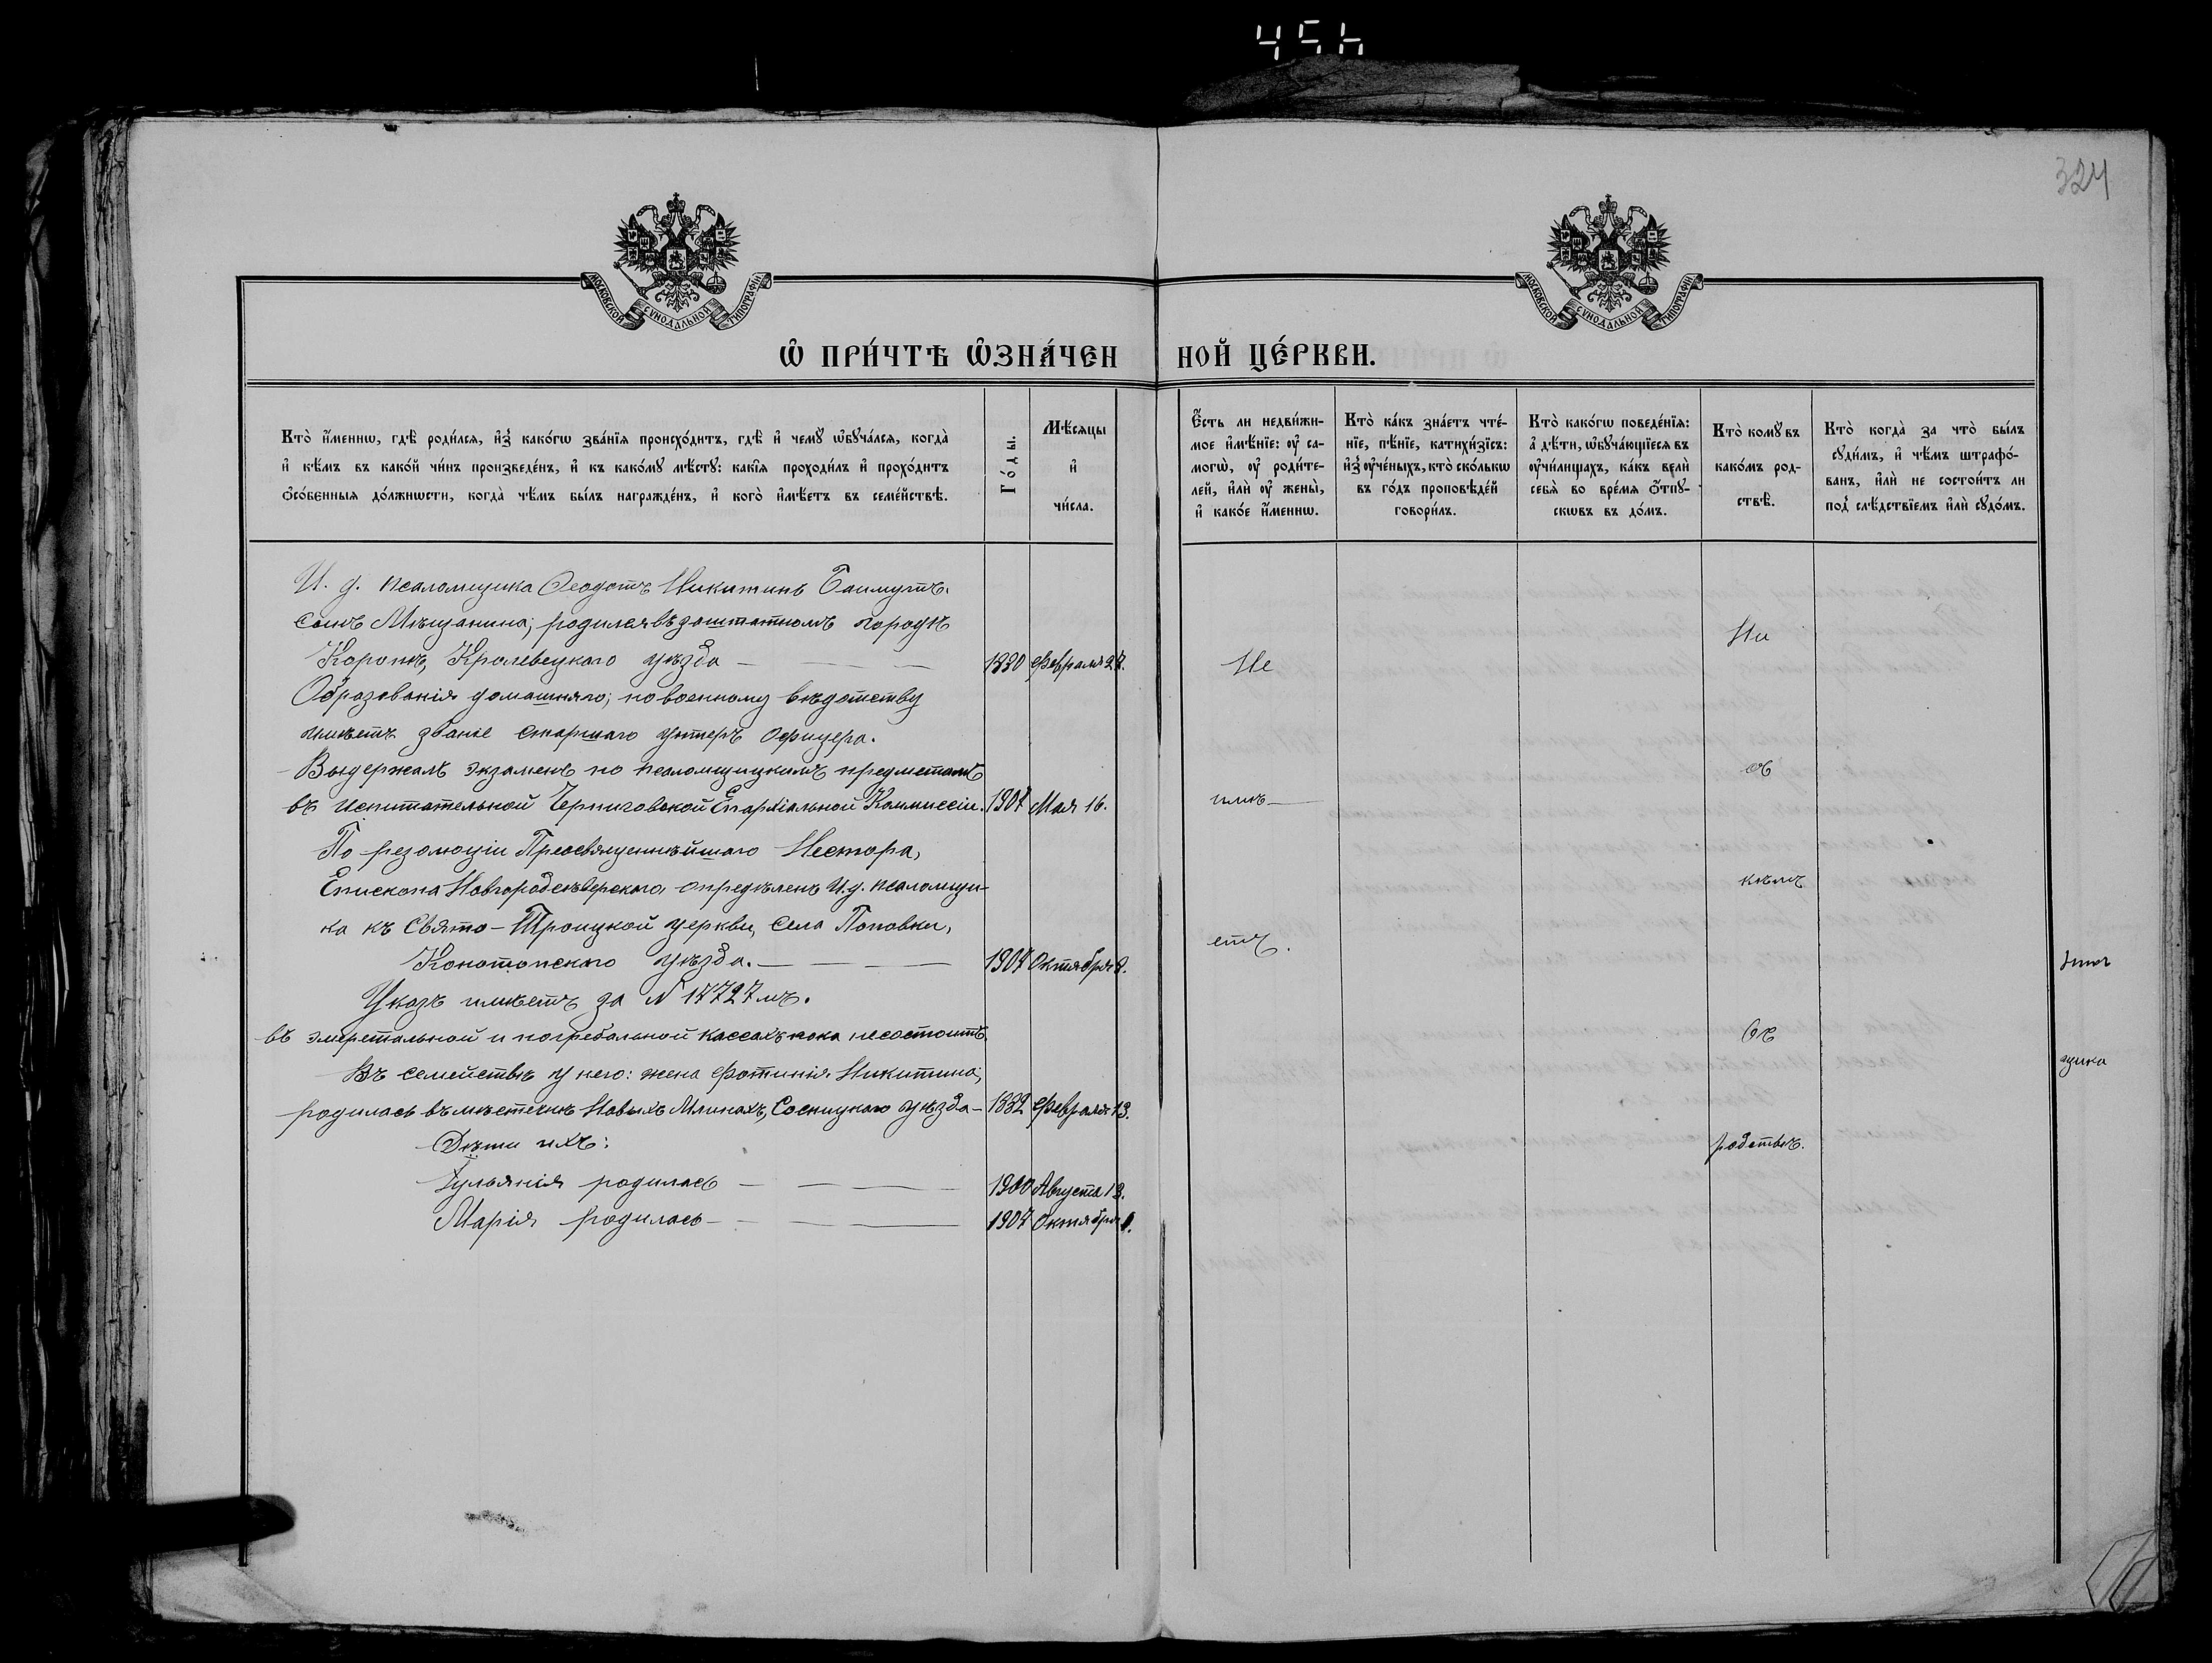 324
МОСКОВСКОЙ СѴНОДАЛЬНОЙ ТИПОГРАФІИ
МОСКОВСКОЙ СѴНОДАЛЬНОЙ ТИПОГРАФІИ
Ѡ҆ ПРИ́ЧТѢ Ѡ҆ЗНА́ЧЕННОЙ ЦЕ́РКВИ.
Кто̀ и҆́меннѡ, гдѣ̀ роди́лсѧ, и҆з̾ како́гѡ зва́нїѧ происхо́дитъ, гдѣ̀ и҆ чемꙋ̀ ѡ҆бꙋча́лсѧ, когда̀
и҆ кѣ́мъ въ како́й чи́нъ произведе́нъ, и҆ къ како́мꙋ мѣ́стꙋ: какі̑ѧ проходи́лъ и҆ прохо́дитъ
ѻ҆со́бенныѧ до́лжнѡсти, когда̀ чѣ́мъ бы́лъ награжде́нъ, и҆ кого̀ и҆мѣ́етъ въ семе́йствѣ.
Го́ды.
Мѣ́сѧцы
и҆
чи́сла.
Е҆́сть ли недви́жи-
мое и҆мѣ́нїе: оу҆ са-
могѡ̀, оу҆ роди́те-
лей, и҆лѝ оу҆ жены̀,
и҆ како́е и҆́меннѡ.
Кто̀ ка́къ зна́етъ чте́-
нїе, пѣ́нїе, катихи́зїсъ:
и҆з̾ оу҆че́ныхъ, кто̀ ско́лькѡ
въ го́дъ проповѣ́дей
говори́лъ.
Кто̀ како́гѡ поведе́нїѧ:
а҆ дѣ́ти, ѡ҆бꙋча́ющїесѧ въ
оу҆чи́лищахъ, ка́къ велѝ
себѧ̀ во вре́мѧ ѻ҆́тпꙋ-
скѡвъ въ до́мъ.
Кто̀ комꙋ̀ въ
како́мъ род-
ствѣ̀.
Кто̀ когда̀ за что̀ бы́лъ
сꙋди́мъ, и҆ чѣ́мъ штрафо́-
ванъ, и҆лѝ не состои́тъ ли
под̾ слѣ́дствїемъ и҆лѝ сꙋдо́мъ.
И. д. псаломщика Ѳеодотъ Никитинъ
сынъ Мѣщанина; родился въ заштатномъ городѣ
Коропѣ, Кролевецкаго уѣзда — 1880 Февраля 27.
Образованія домашняго; по военному вѣдомству
имѣетъ званіе старшаго унтеръ офицера.
Выдержалъ экзаменъ по псаломщицкимъ предметамъ
въ испытательной Черниговской Епархіальной Коммиссіи. 1907 Мая 16.
По резолюціи Преосвященнѣйшаго Нестора,
Епископа Новгородсѣверскаго опредѣленъ И. д. псаломщи-
ка къ Свято-Троицкой церкви, села Поповки,
Конотопскаго уѣзда. — 1907 Октября
Указъ имѣетъ за N 17727мъ.
въ эмеретальной и погребальной кассахъ пока несостоитъ.
Въ семействѣ у него: жена Фотинія Никитина;
родилась въ мѣстечкѣ Новыхъ Млинахъ, Сосницкаго уѣзда — 1882 Февраля 13.
Дѣти ихъ:
Іульянія родилась — 1900 Августа 13.
Марія родилась — 1907 Октября
Не
имѣ-
етъ.
Ни
съ
кѣмъ
въ
родствѣ.